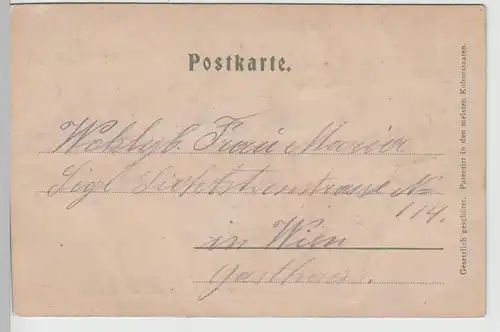 Postkarte.
Wohlgb. Frau Maria
Sigl Lichtensteinstrasse No
114.
in Wien
Gasthaus.
Gesetzlich geschützt. Patentirt in den meisten Kulturstaaten.